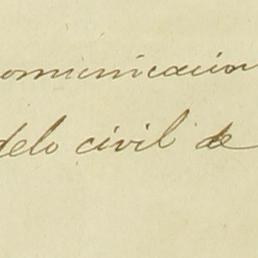 omunicacion
delo civil de